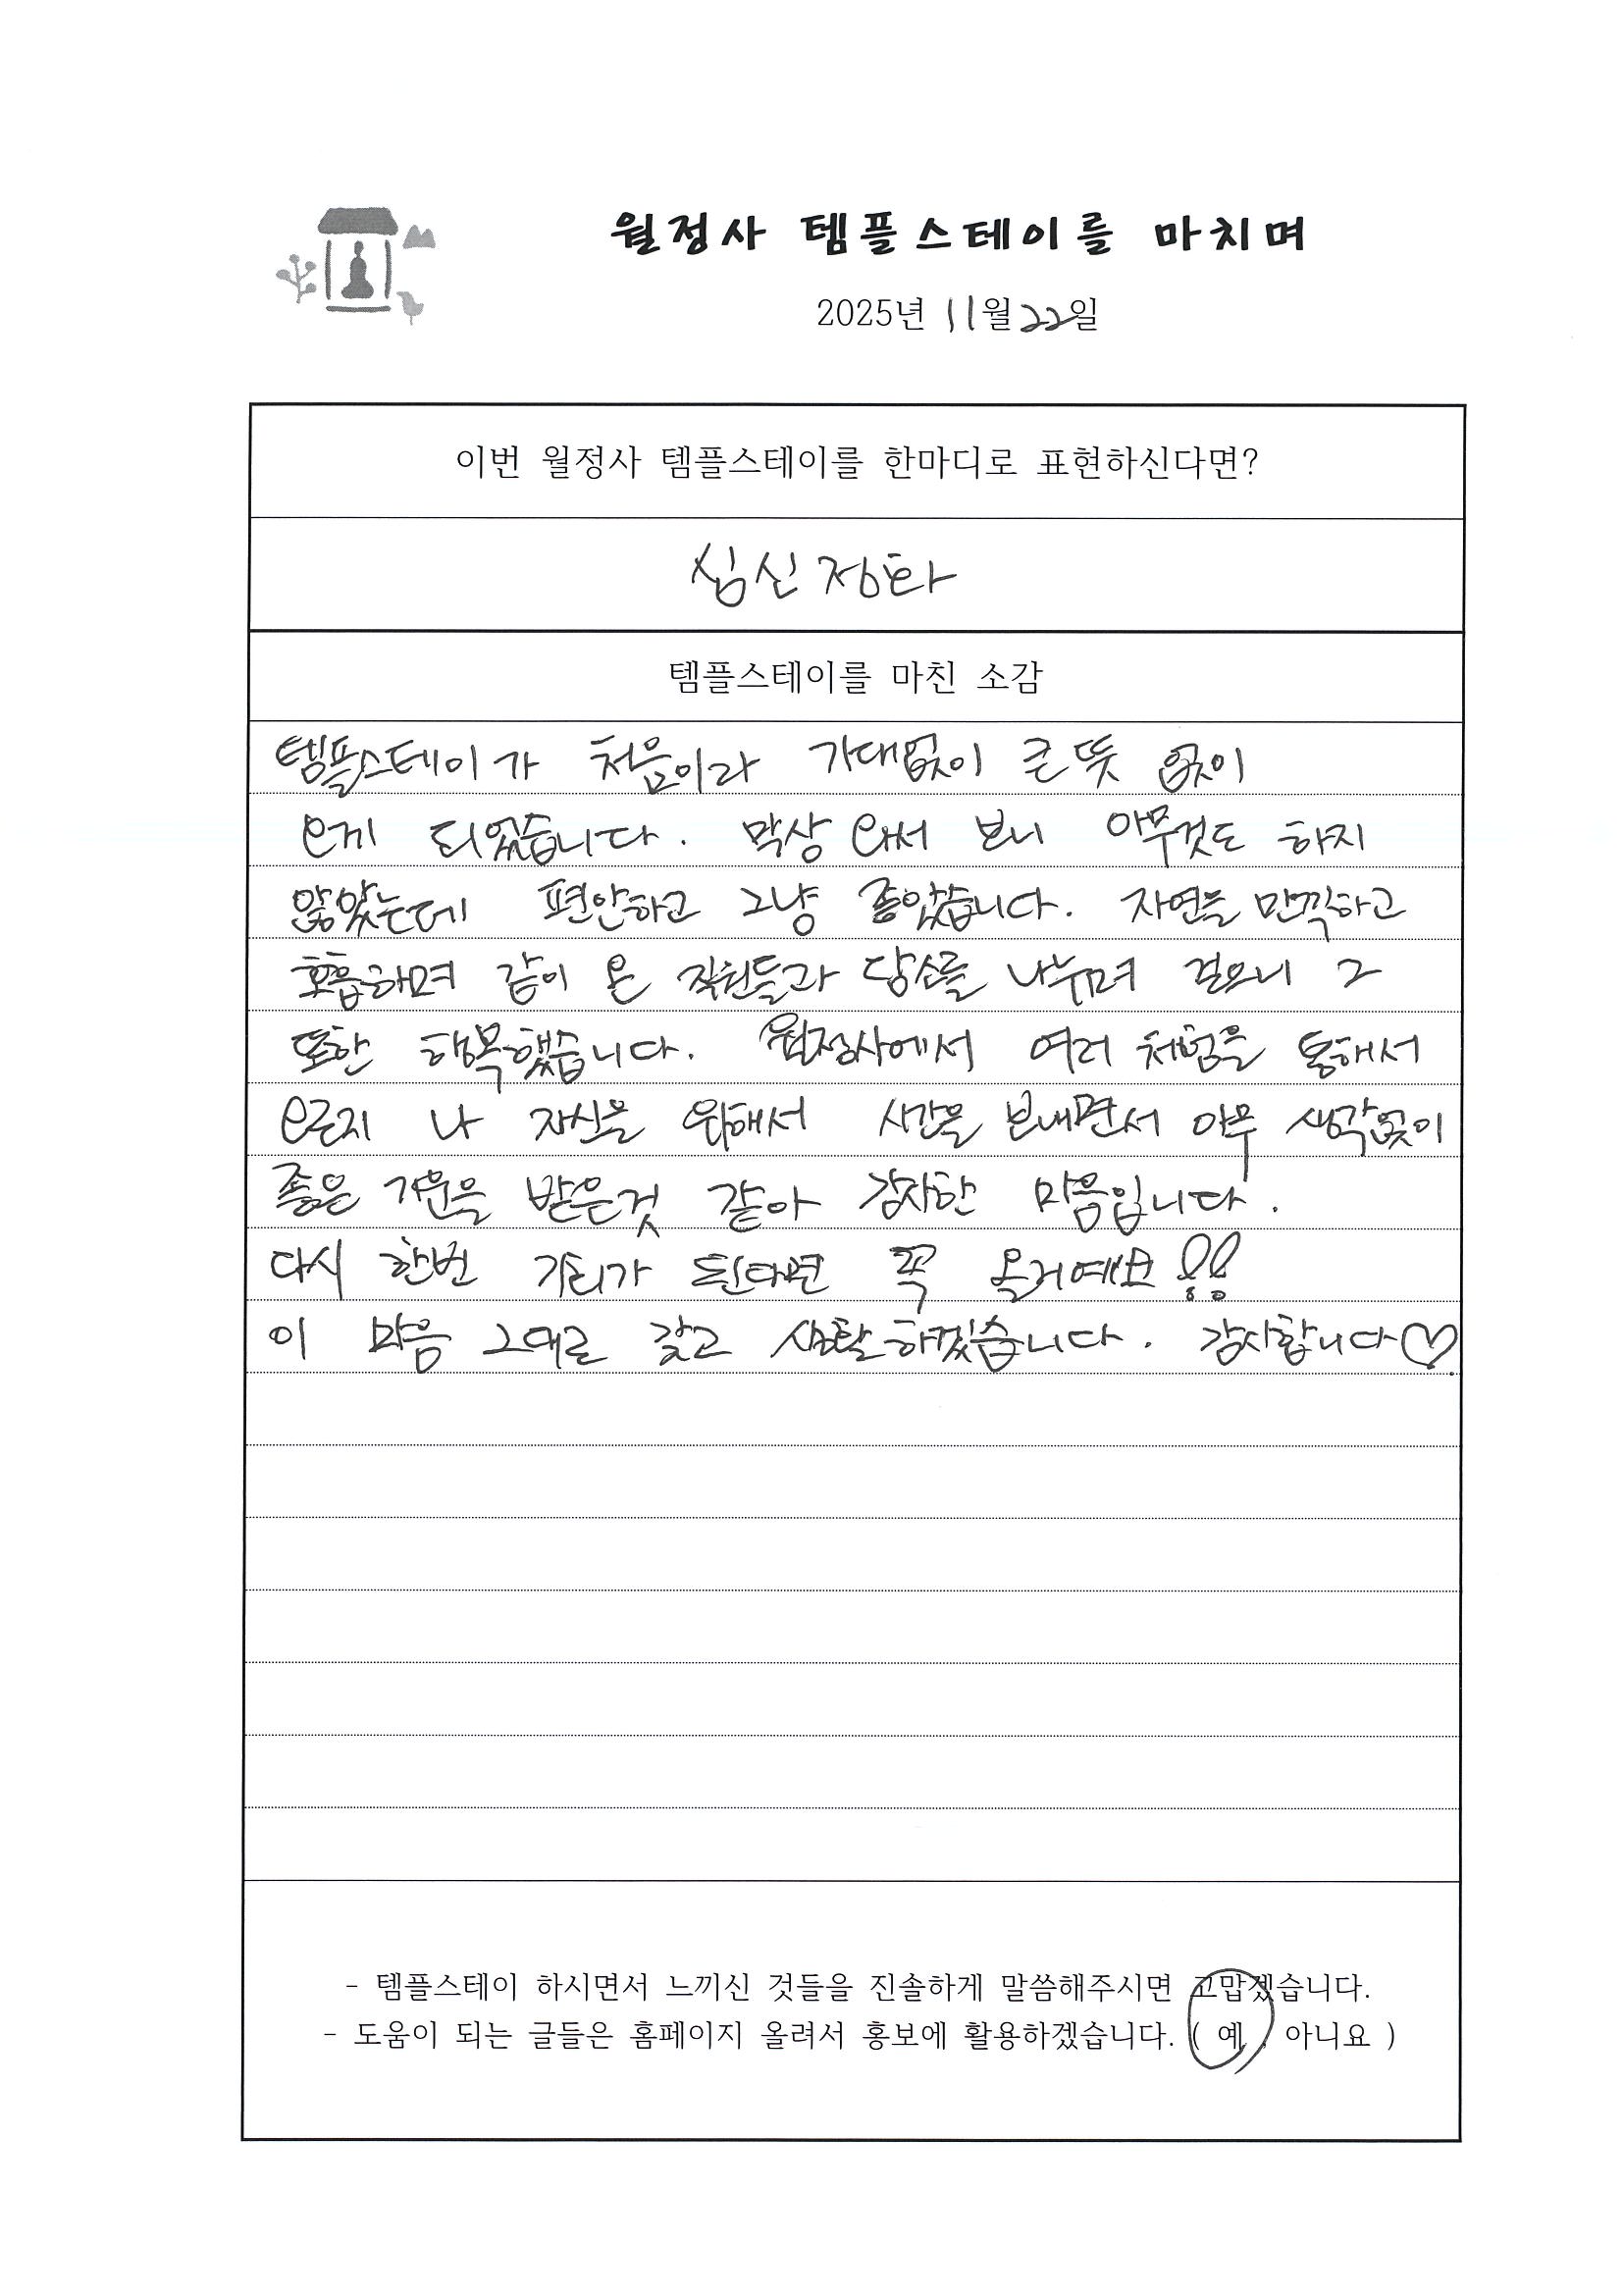 월정사 템플스테이를 마치며
2025년 11월 22일
이번 월정사 템플스테이를 한마디로 표현하신다면?
심신정화
템플스테이를 마친 소감
템플스테이가 처음이라 기대없이 큰 뜻 없이
오게 되었습니다. 막상 와서 보니 아무것도 하지
않았는데 편안하고 그냥 좋았습니다. 자연을 만끽하고
호흡하며 같이 온 직원들과 담소를 나누며 걸으니 그
또한 행복했습니다. 월정사에서 여러 체험을 통해서
온근지 나 자신을 위해서 시간을 보내면서 아무 생각없이
좋은 기운을 받은것 같아 감사한 마음입니다.
다시 한번 기회가 된다면 꼭 올거예요!!
이 마음 그대로 갖고 생활하겠습니다. 감사합니다♡.
- 템플스테이 하시면서 느끼신 것들을 진솔하게 말씀해주시면 고맙겠습니다.
- 도움이 되는 글들은 홈페이지 올려서 홍보에 활용하겠습니다. ( 예, 아니요 )